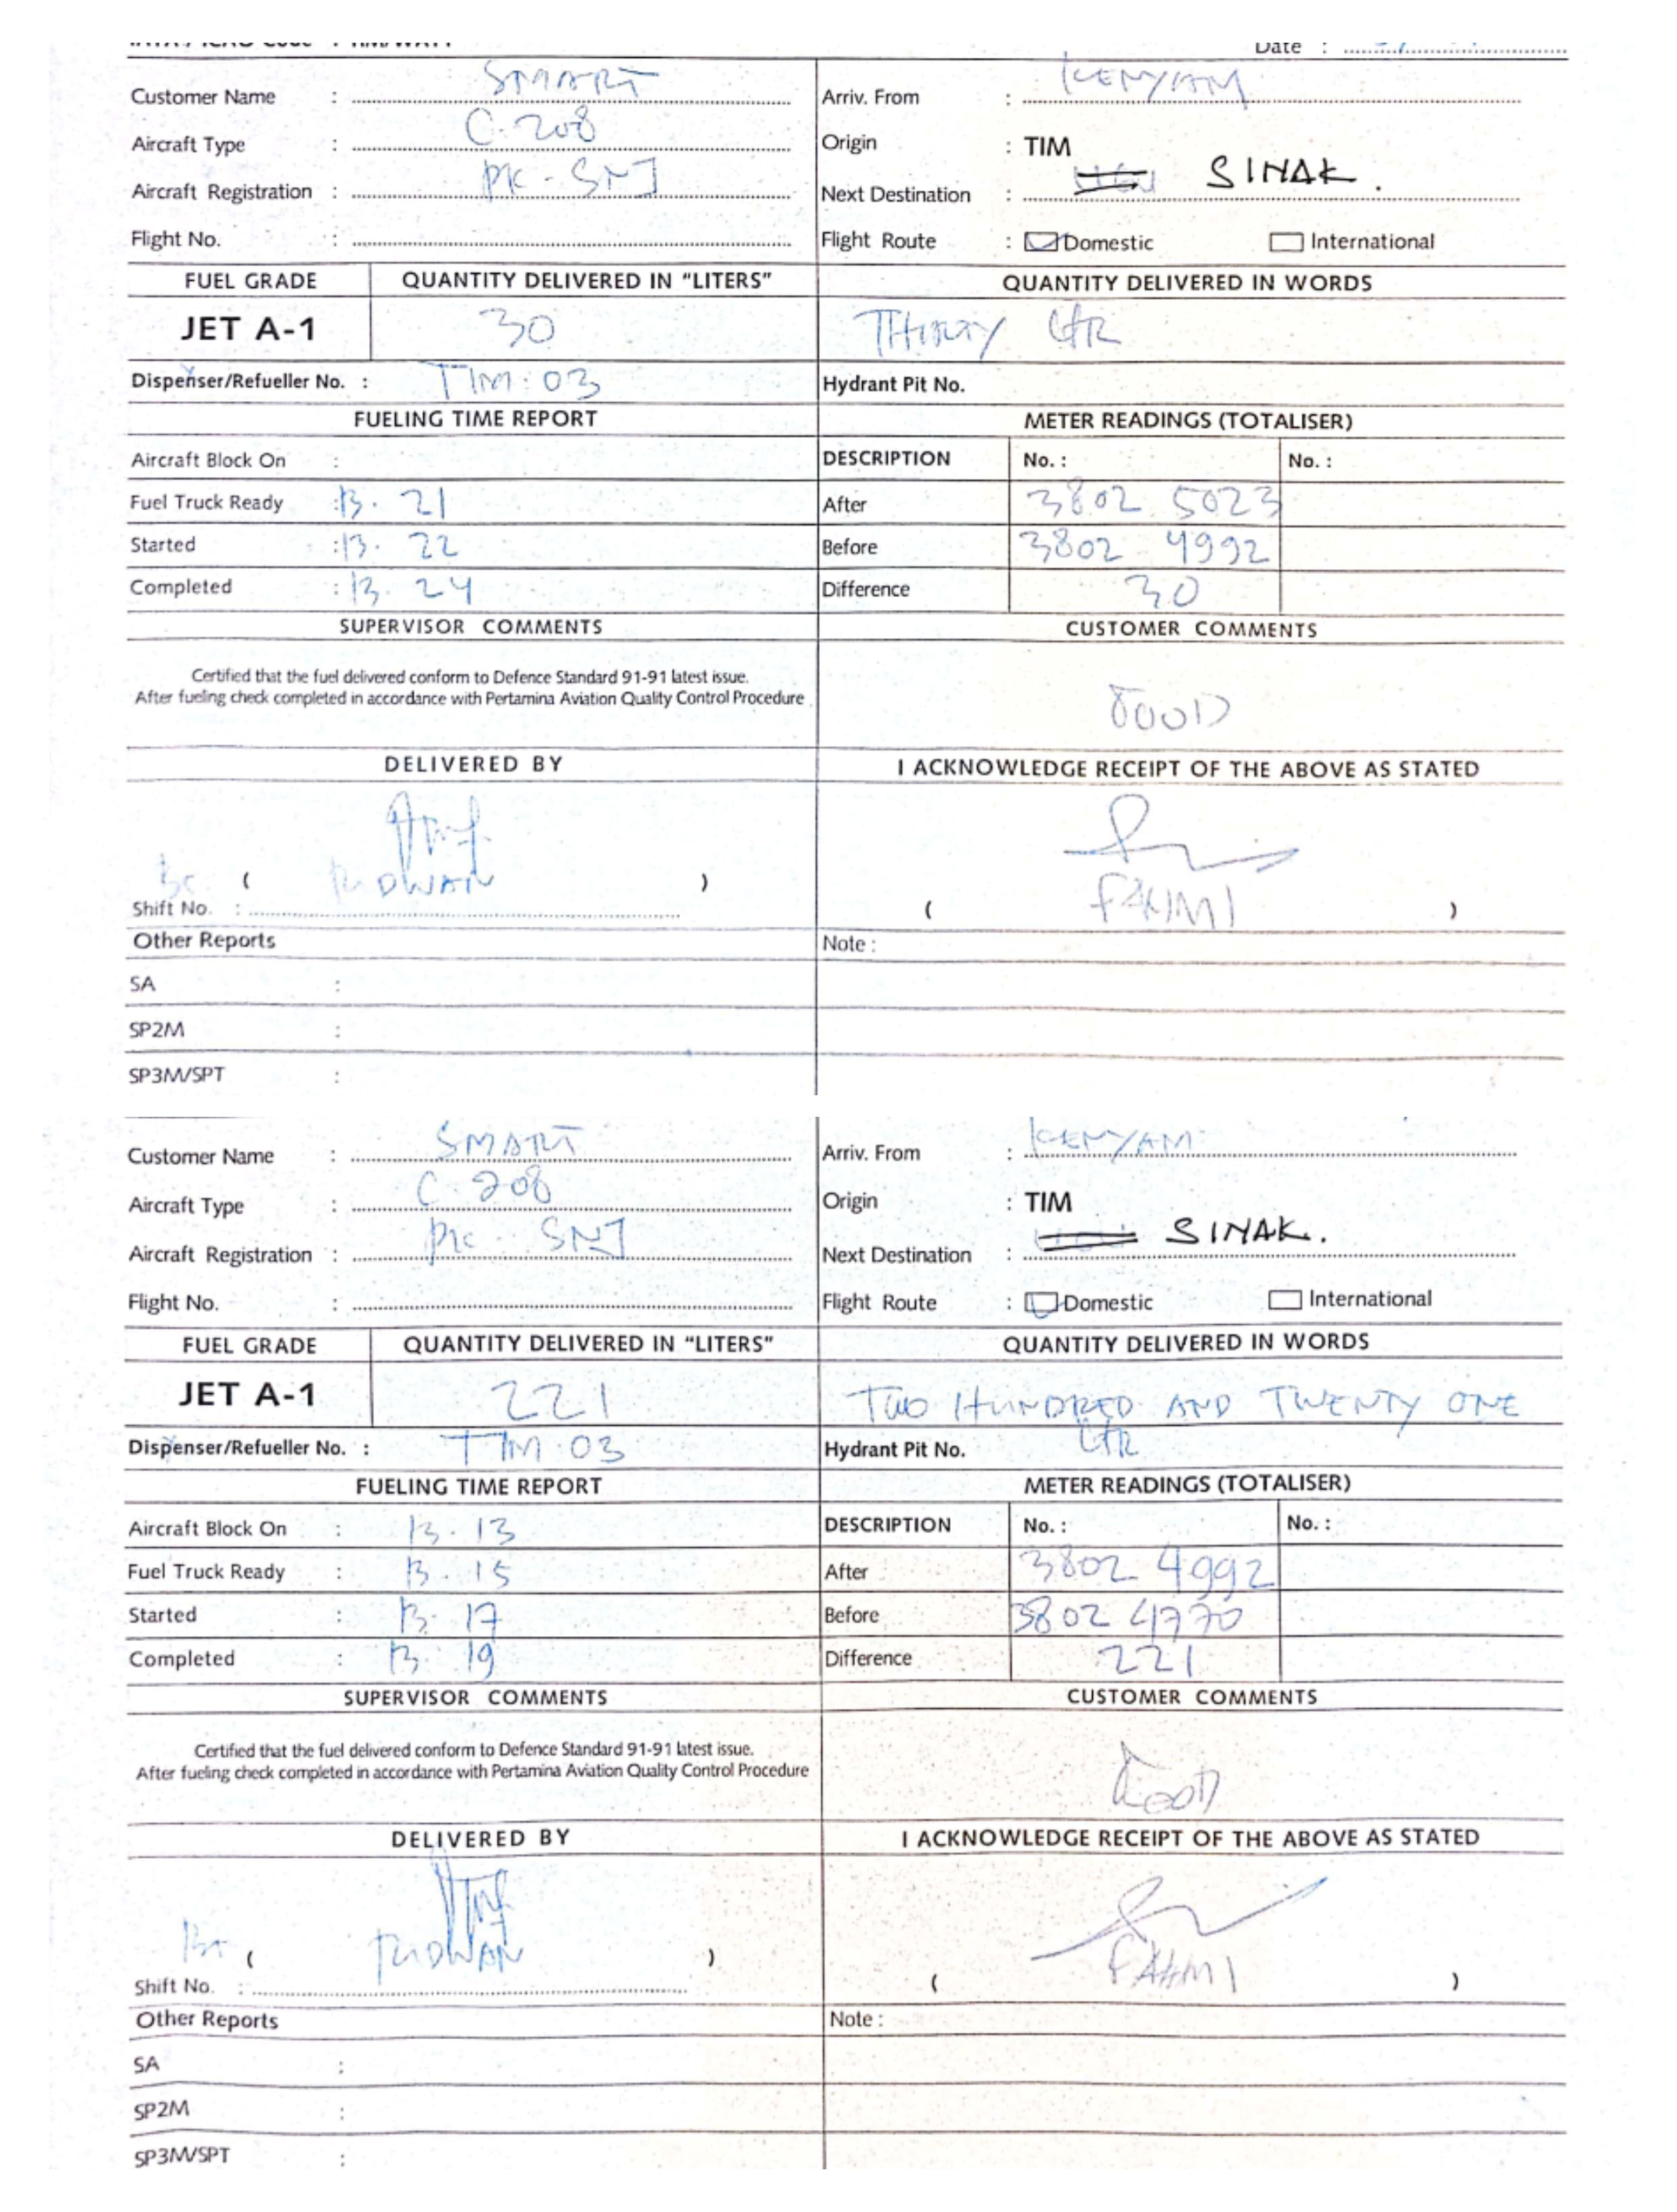 Date :
Customer Name : SMART
Arriv. From : KENYAM
Aircraft Type : C.208
Origin : TIM
Aircraft Registration : PK-SNJ
Next Destination : SINAK.
Flight No. :
Flight Route : Domestic International
FUEL GRADE QUANTITY DELIVERED IN "LITERS" QUANTITY DELIVERED IN WORDS
JET A-1 30 THIRTY LTR
Dispenser/Refueller No. : TIM.03 Hydrant Pit No.
FUELING TIME REPORT METER READINGS (TOTALISER)
Aircraft Block On : DESCRIPTION No. : No. :
Fuel Truck Ready : 13. 21 After 3802 5023
Started : 13. 22 Before 3802 4992
Completed : 13. 24 Difference 30
SUPERVISOR COMMENTS CUSTOMER COMMENTS
Certified that the fuel delivered conform to Defence Standard 91-91 latest issue.
After fueling check completed in accordance with Pertamina Aviation Quality Control Procedure
GOOD
DELIVERED BY I ACKNOWLEDGE RECEIPT OF THE ABOVE AS STATED
( RIDWAN )
Shift No. :
( FAHMI )
Other Reports Note :
SA :
SP2M :
SP3M/SPT :
Customer Name : SMART
Arriv. From : KENYAM
Aircraft Type : C.208
Origin : TIM
Aircraft Registration : PK-SNJ
Next Destination : SINAK.
Flight No. :
Flight Route : Domestic International
FUEL GRADE QUANTITY DELIVERED IN "LITERS" QUANTITY DELIVERED IN WORDS
JET A-1 221 TWO HUNDRED AND TWENTY ONE
LTR
Dispenser/Refueller No. : TIM.03 Hydrant Pit No.
FUELING TIME REPORT METER READINGS (TOTALISER)
Aircraft Block On : 13.13 DESCRIPTION No. : No. :
Fuel Truck Ready : 13.15 After 3802 4992
Started : 13. 17 Before 3802 4770
Completed : 13. 19 Difference 221
SUPERVISOR COMMENTS CUSTOMER COMMENTS
Certified that the fuel delivered conform to Defence Standard 91-91 latest issue.
After fueling check completed in accordance with Pertamina Aviation Quality Control Procedure
GOOD
DELIVERED BY I ACKNOWLEDGE RECEIPT OF THE ABOVE AS STATED
( RIDWAN )
Shift No. :
( FAHMI )
Other Reports Note :
SA :
SP2M :
SP3M/SPT :